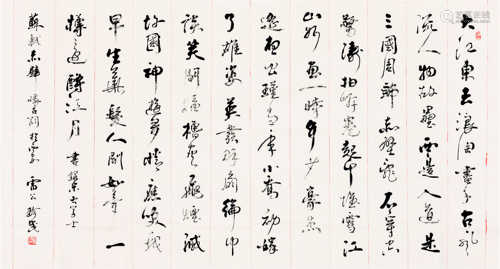 大江東去浪淘盡千古風
流人物故壘西邊人道是
三國周郎赤壁亂石穿空
驚濤拍岸卷起千堆雪江
山如畫一時多少豪傑
遙想公瑾當年小喬初嫁
了雄姿英發羽扇綸巾
談笑間檣櫓灰飛煙滅
故國神遊多情應笑我
早生華髮人間如夢一
樽還酹江月 書 大學士
蘇軾赤壁懷古詞 於 雷公